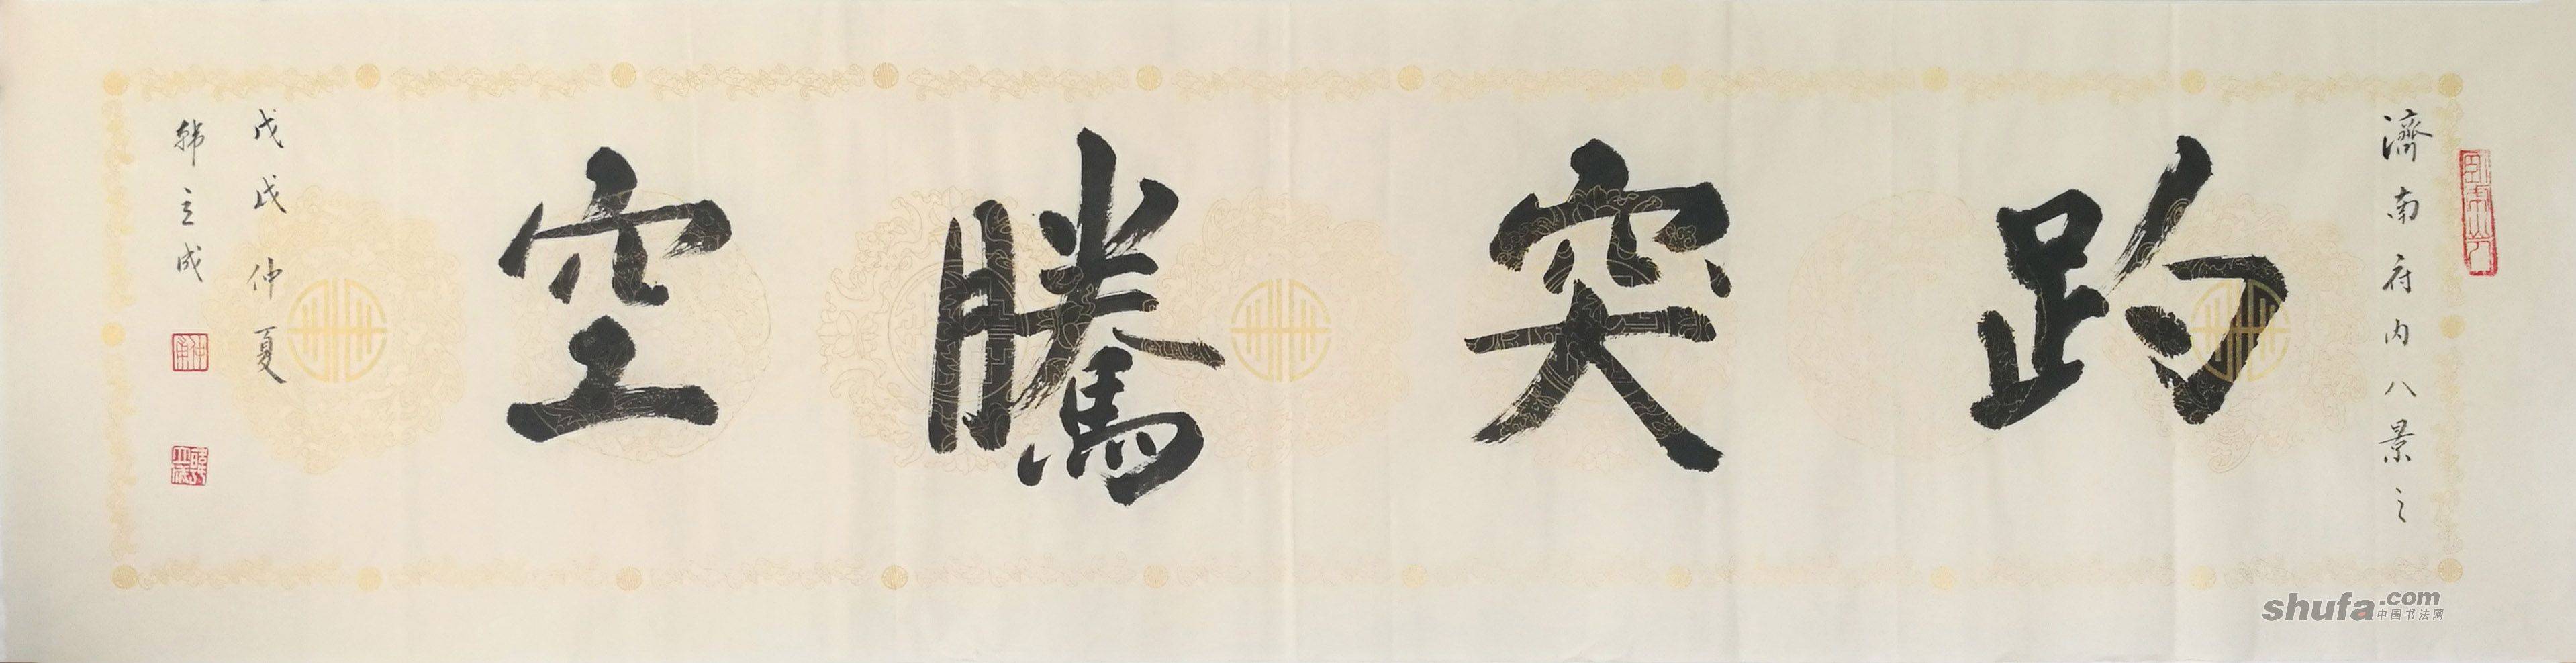 濟南府内八景之
趵突騰空
戊戌仲夏
韩立成
shufa.com
中国书法网